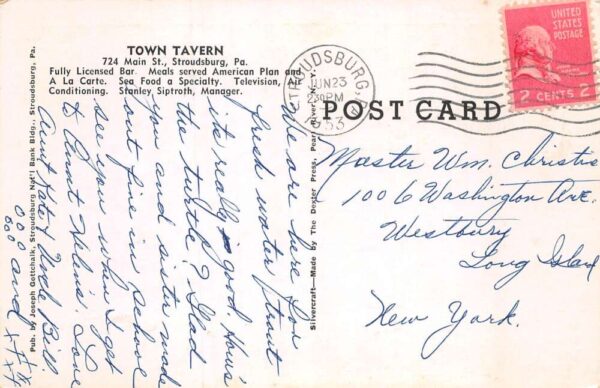 TOWN TAVERN
724 Main St., Stroudsburg, Pa.
Fully Licensed Bar. Meals served American Plan and
A La Carte. Sea Food a Specialty. Television, Air
Conditioning. Stanley Siptroth, Manager.
Pub. by Joseph Gottchalk, Stroudsburg Nat'l Bank Bldg., Stroudsburg, Pa.
STROUDSBURG,
JUN 23
230 PM
1953
UNITED
STATES
POSTAGE
2 CENTS 2
POST CARD
Silvercraft—Made by The Dexter Press, Pearl River, N. Y.
We are here for
fresh water trout
its really good. How's
the turtle? Glad
you and sister made
out fine in school
see you when I get
to Aunt Helen's. Love
Aunt Kate & Uncle Bill
000 and xxx
000 xxx
Master Wm. Christie
1006 Washington Ave.
Westbury
Long Island
New York.